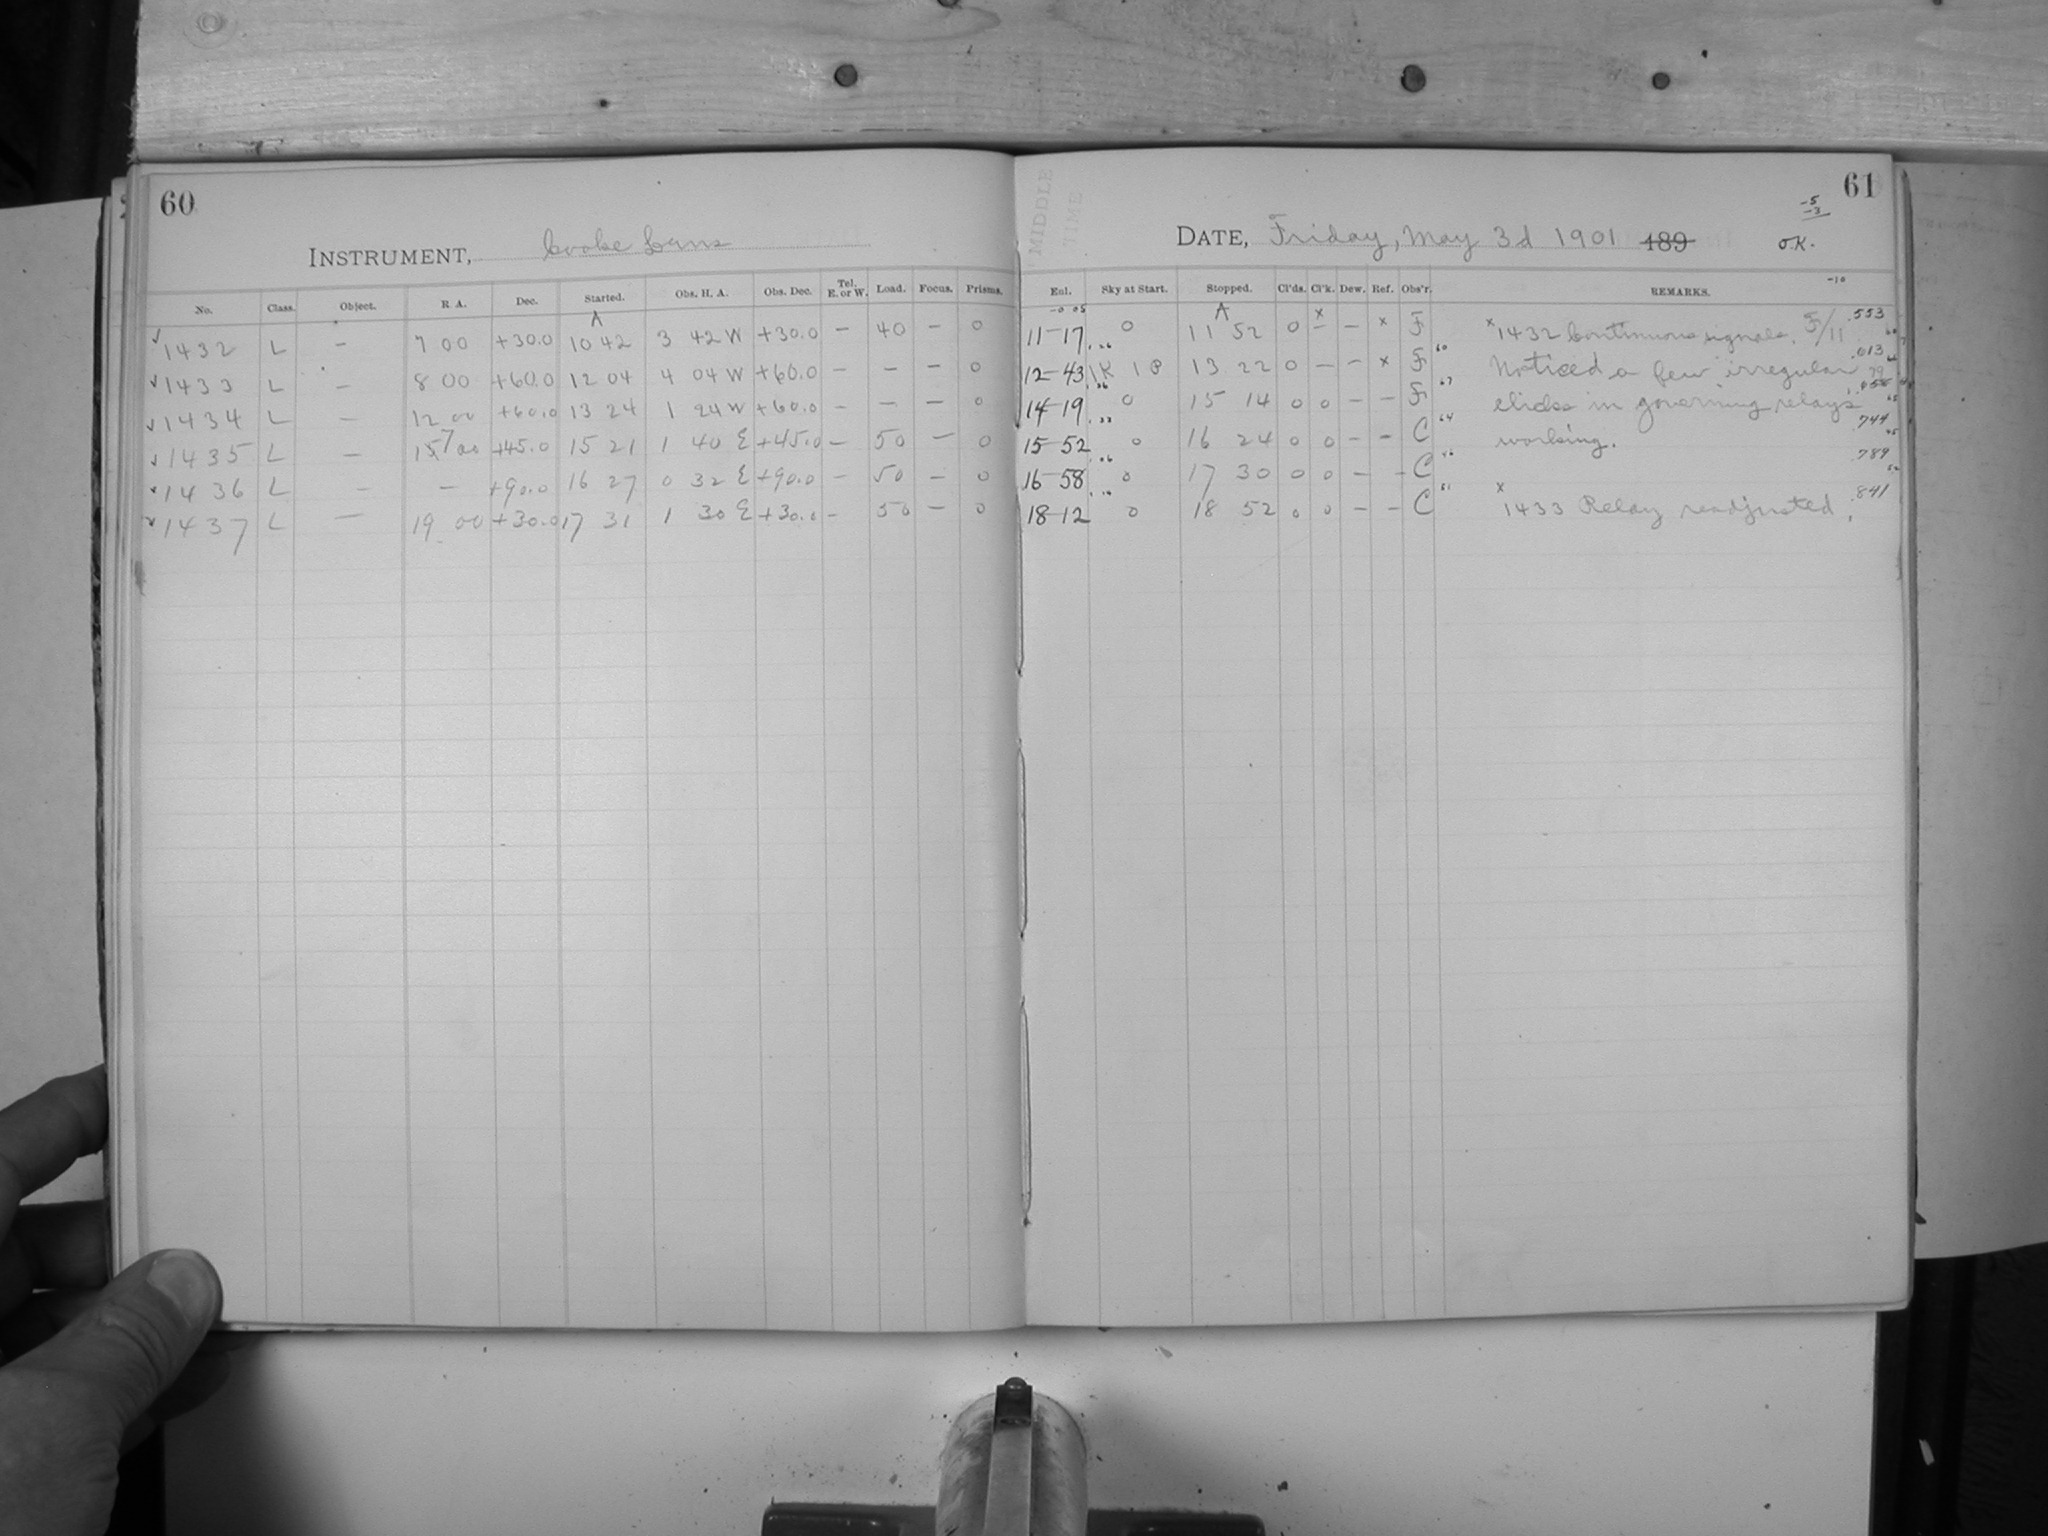 60
INSTRUMENT, Cooke Lens
No. Class. Object. R. A. Dec. Started. Obs. H. A. Obs. Dec. Tel. E. or W. Load. Focus. Prisms.
A
✓ 1432 L — 7 00 +30.0 10 42 3 42 W +30.0 — 40 — 0
✓ 1433 L — 8 00 +60.0 12 04 4 04 W +60.0 — — — 0
✓ 1434 L — 12 00 +60.0 13 24 1 24 W +60.0 — — — 0
✓ 1435 L — 15 00 +45.0 15 21 1 40 E +45.0 — 50 — 0
✓ 1436 L — — +90.0 16 27 0 32 E +90.0 — 50 — 0
✓ 1437 L — 19 00 +30.0 17 31 1 30 E +30.0 — 50 — 0
61
MIDDLE
TIME
-5
-3
DATE, Friday, May 3d 1901 189 O.K.
Enl. Sky at Start. Stopped. Cl'ds. Cl'k. Dew. Ref. Obs'r. REMARKS.
-10
A x
11-17 0 11 52 0 — — x F x 1432 Continuous signals. F/11 .553
12-43 1K 1P 13 22 0 — — x F Noticed a few irregular .613
14-19 0 15 14 0 0 — — F clicks in governing relays
15-52 0 16 24 0 0 — — C working. .744
16-58 0 17 30 0 0 — — C .789
18-12 0 18 52 0 0 — — C x 1433 Relay readjusted. .841